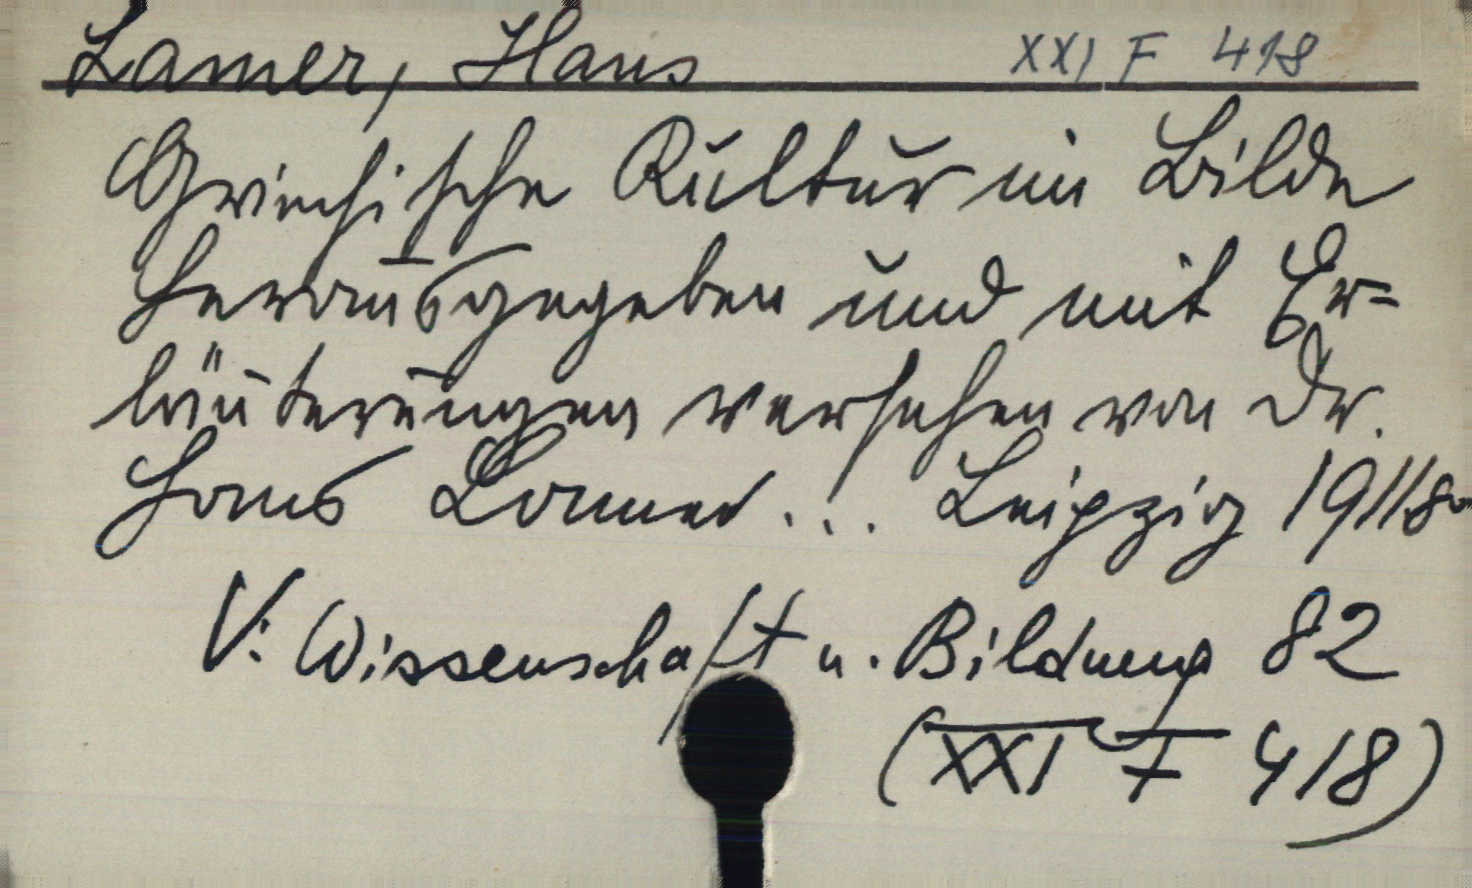 Lamer, Hans XXI F 418
Griechische Kultur im Bilde
herausgegeben und mit Er-
läuterungen versehen von Dr.
Hans Lamer... Leipzig 1911 8°
V: Wissenschaft u. Bildung 82
(XXI F 418)